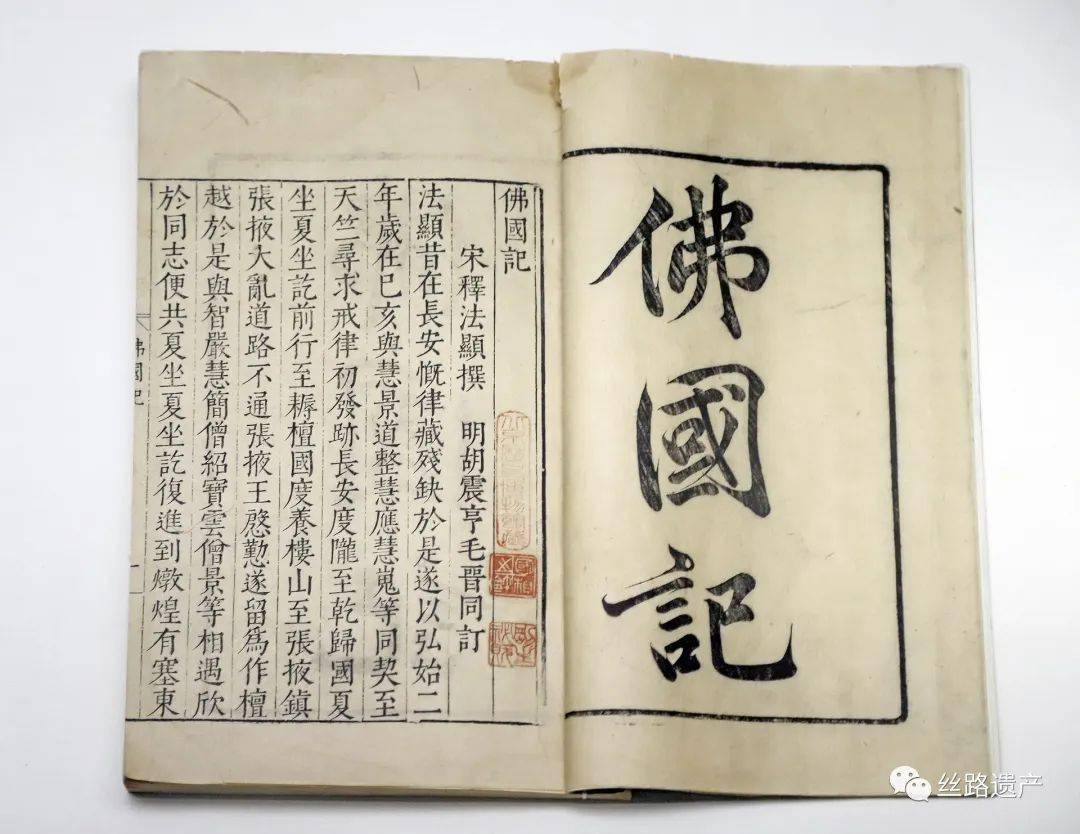 佛國記
佛國記
宋釋法顯撰 明胡震亨毛晉同訂
法顯昔在長安慨律藏殘缺於是遂以弘始二
年歲在已亥與慧景道整慧應慧嵬等同契至
天竺尋求戒律初發跡長安度隴至乾歸國夏
坐夏坐訖前行至耨檀國度養樓山至張掖鎮
張掖大亂道路不通張掖王慇懃遂留為作檀
越於是與智嚴慧簡僧紹寶雲僧景等相遇欣
於同志便共夏坐夏坐訖復進到燉煌有塞東
佛國記
丝路遗产